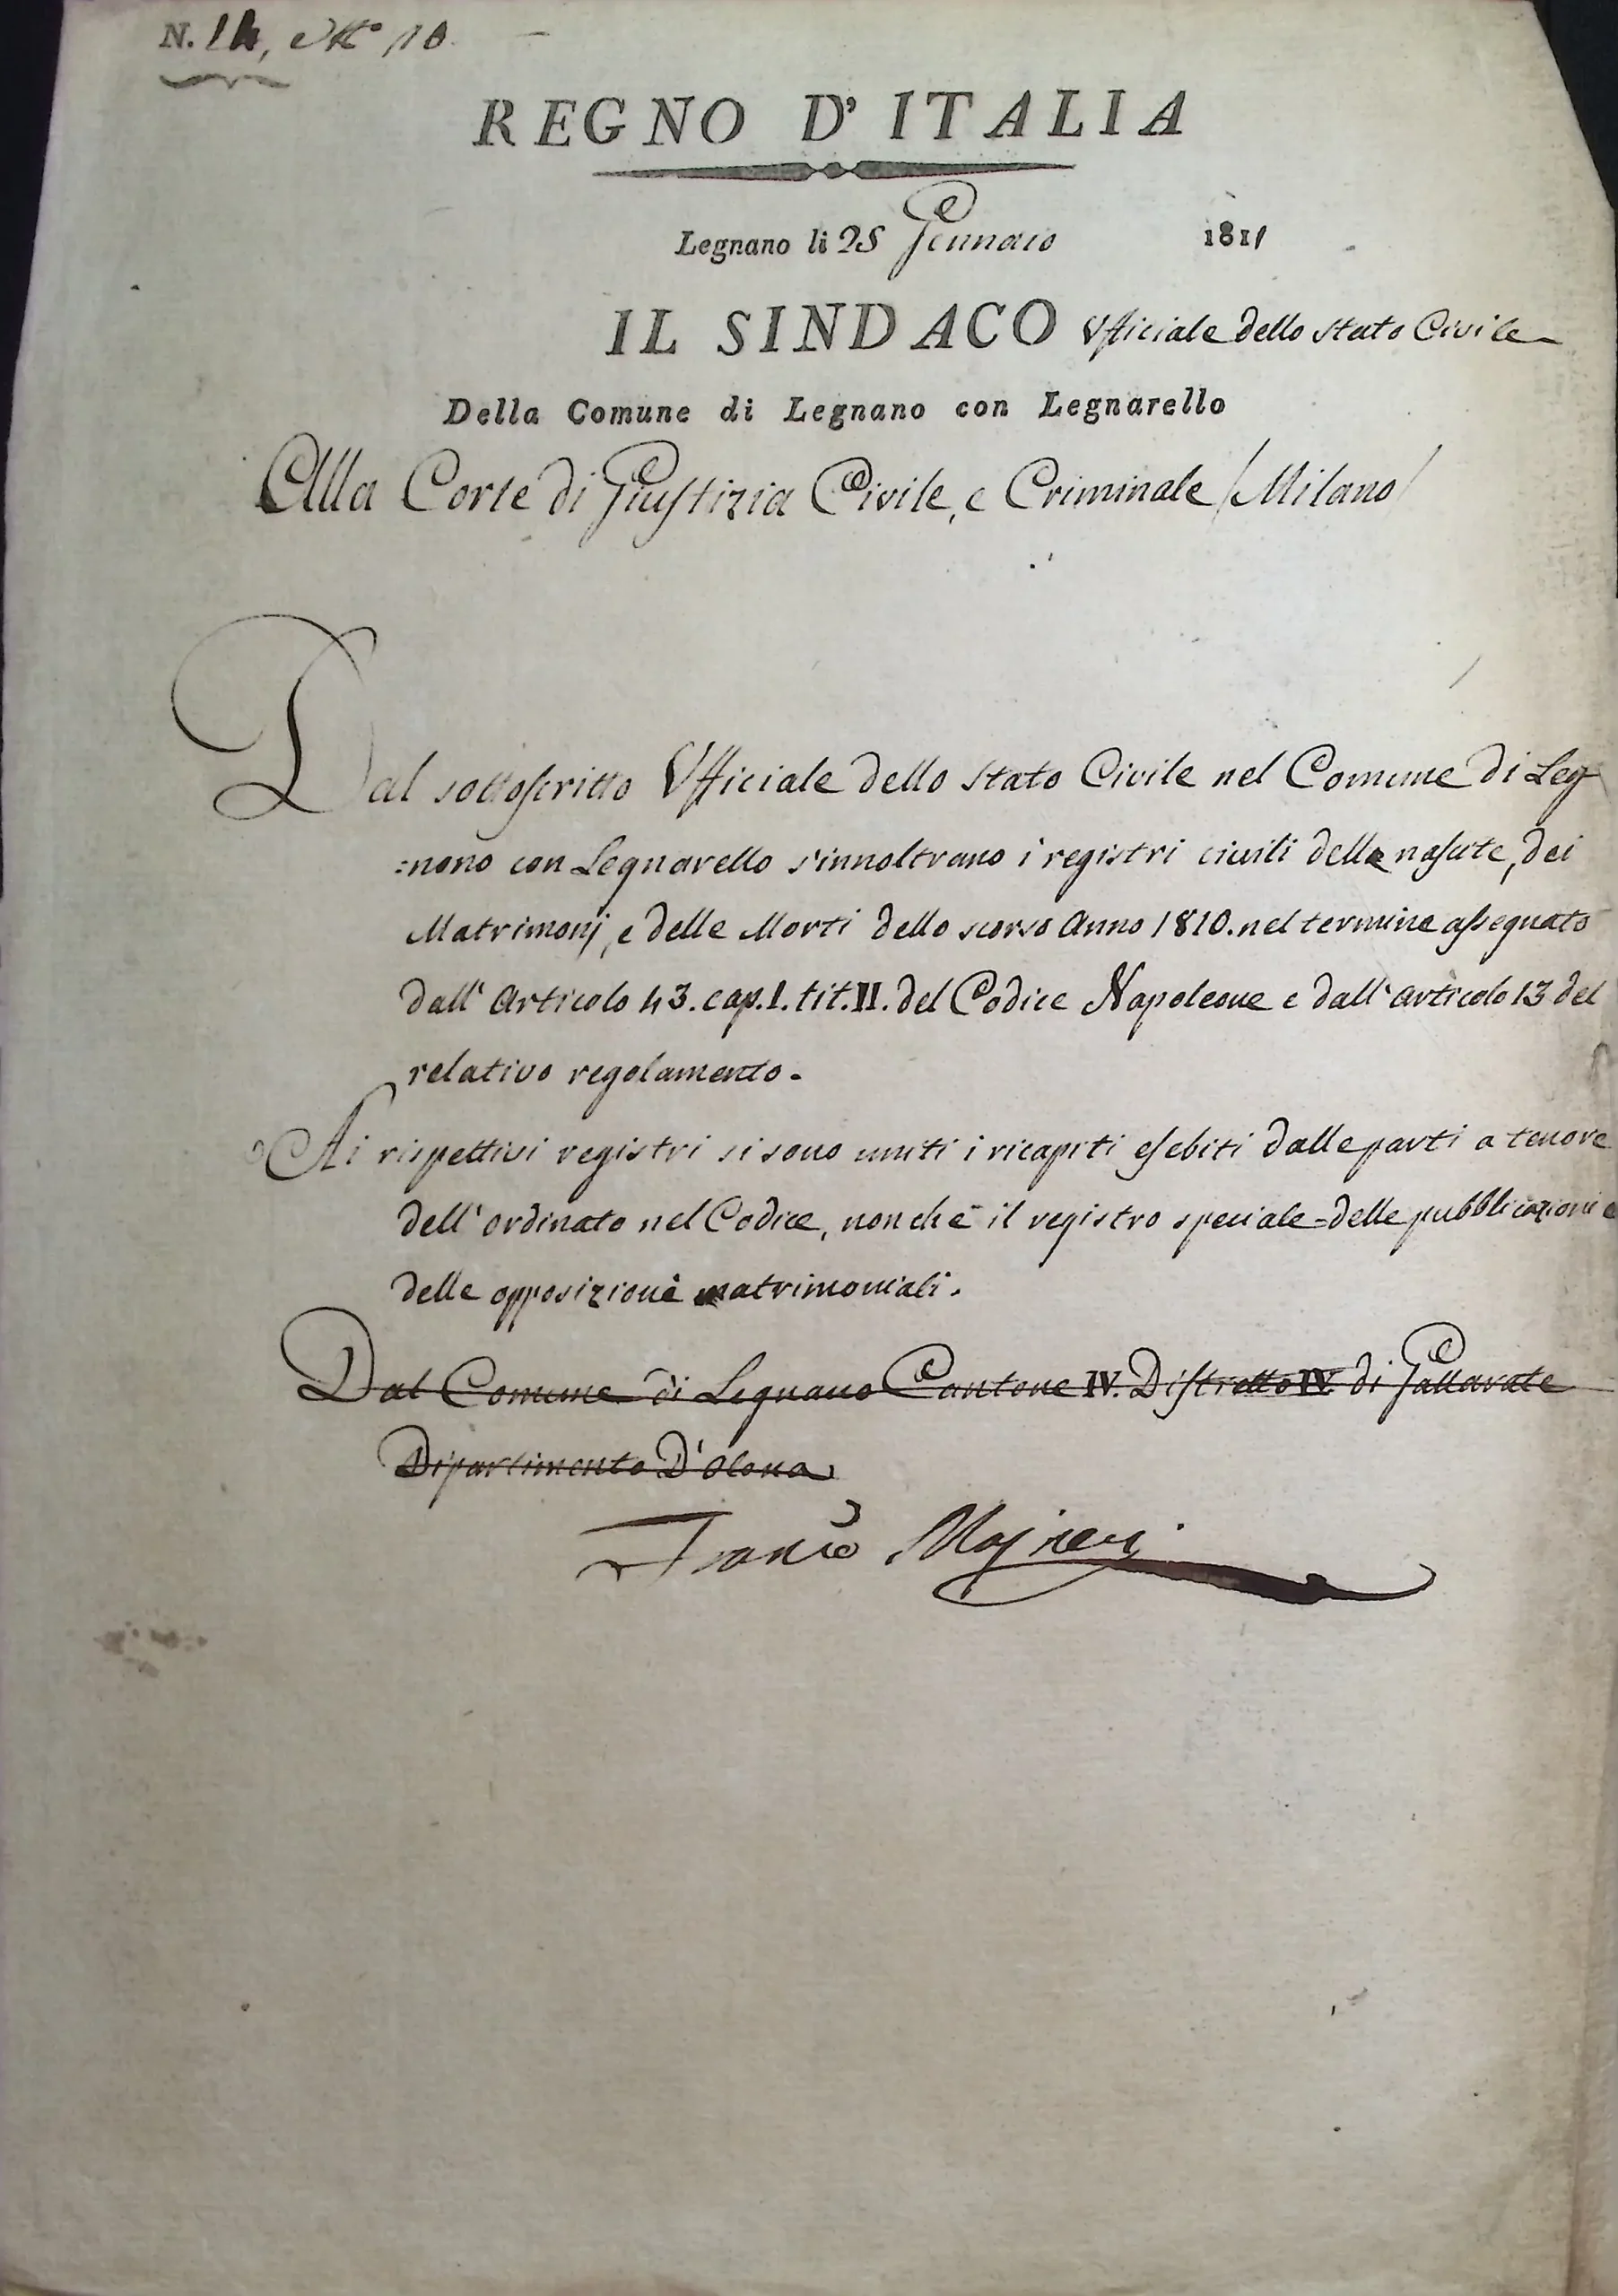 N. 14,
REGNO D'ITALIA
Legnano li 25 Gennaio 1811
IL SINDACO Ufficiale dello Stato Civile
Della Comune di Legnano con Legnarello
Alla Corte di Giustizia Civile, e Criminale /Milano/
Dal sottoscritto Ufficiale dello Stato Civile nel Comune di Leg
:nano con Legnarello s'innoltrano i registri civili delle nascite, dei
Matrimonj, e delle Morti dello scorso Anno 1810. nel termine assegnato
dall' Articolo 43. cap. I. tit. II. del Codice Napoleone e dall' articolo 13 del
relativo regolamento.
Ai rispettivi registri si sono uniti i ricapiti esebiti dalle parti a tenore
dell' ordinato nel Codice, non che il registro speciale delle pubblicazioni e
delle opposizioni matrimoniali.
Dal Comune di Legnano Cantone IV. Distretto IV. di Gallarate
Dipartimento D'Olona